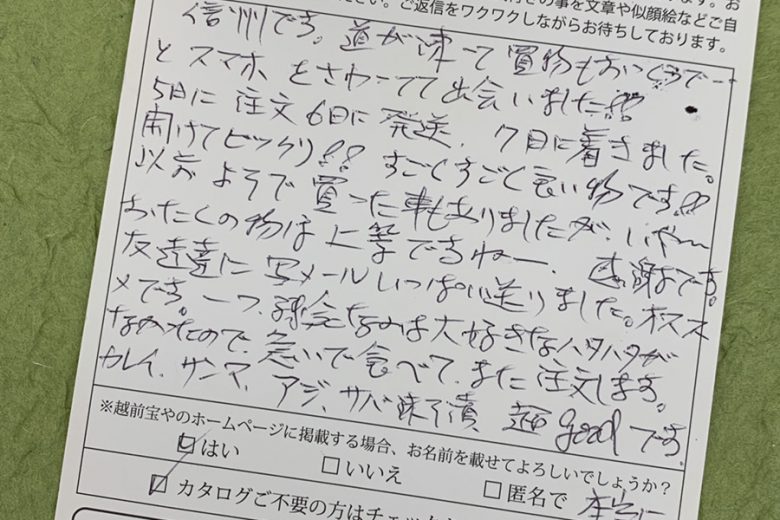 の事を文章や似顔絵などご自
ださい。ご返信をワクワクしながらお待ちしております。
信州です。道が凍って買物もおっくうで…
とスマホをさわってて出会いました!!
5日に注文6日に発送、7日に着きました。
開けてビックリ!!すごくすごく良い物です!!
以前よそで買った事もありましたが、いや〜
おたくの物は上等ですねー、感謝です。
友達達に写メールいっぱい送りました。オスス
メです。一つ、残念なのは大好きなハタハタが
なかったので、急いで食べて、また注文します。
カレイ、サンマ、アジ、サバ 超goodです。
※越前宝やのホームページに掲載する場合、お名前を載せてよろしいでしょうか?
☑はい □いいえ □匿名で 本当に
☑カタログご不要の方はチェック